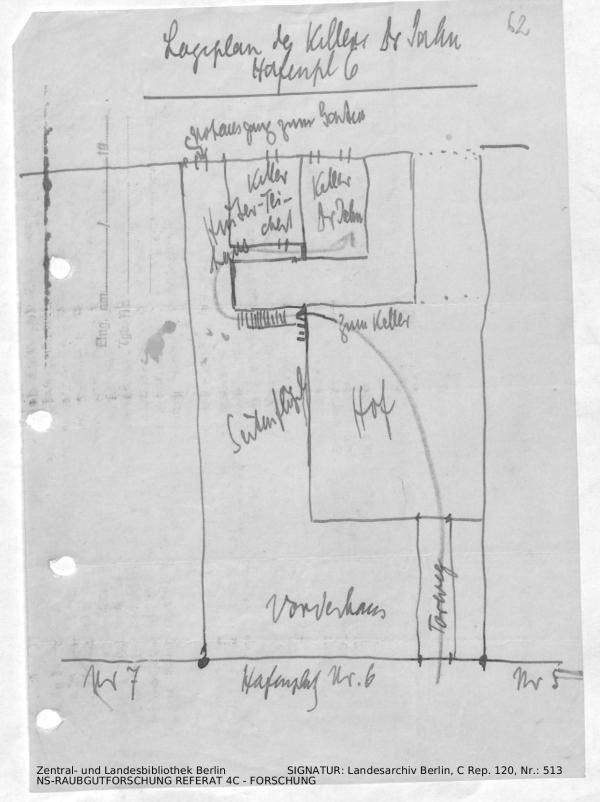 62
Lageplan des Kellers Dr Jahn
Hafenpl 6
Notausgang zum Garten
Keller
Huster-Tei-
chert
Keller
Dr Jahn
zum Keller
Seitenflügel
Hof
Torweg
Vorderhaus
Nr 7
Hafenplatz Nr. 6
Nr 5
Zentral- und Landesbibliothek Berlin
SIGNATUR: Landesarchiv Berlin, C Rep. 120, Nr.: 513
NS-RAUBGUTFORSCHUNG REFERAT 4C - FORSCHUNG